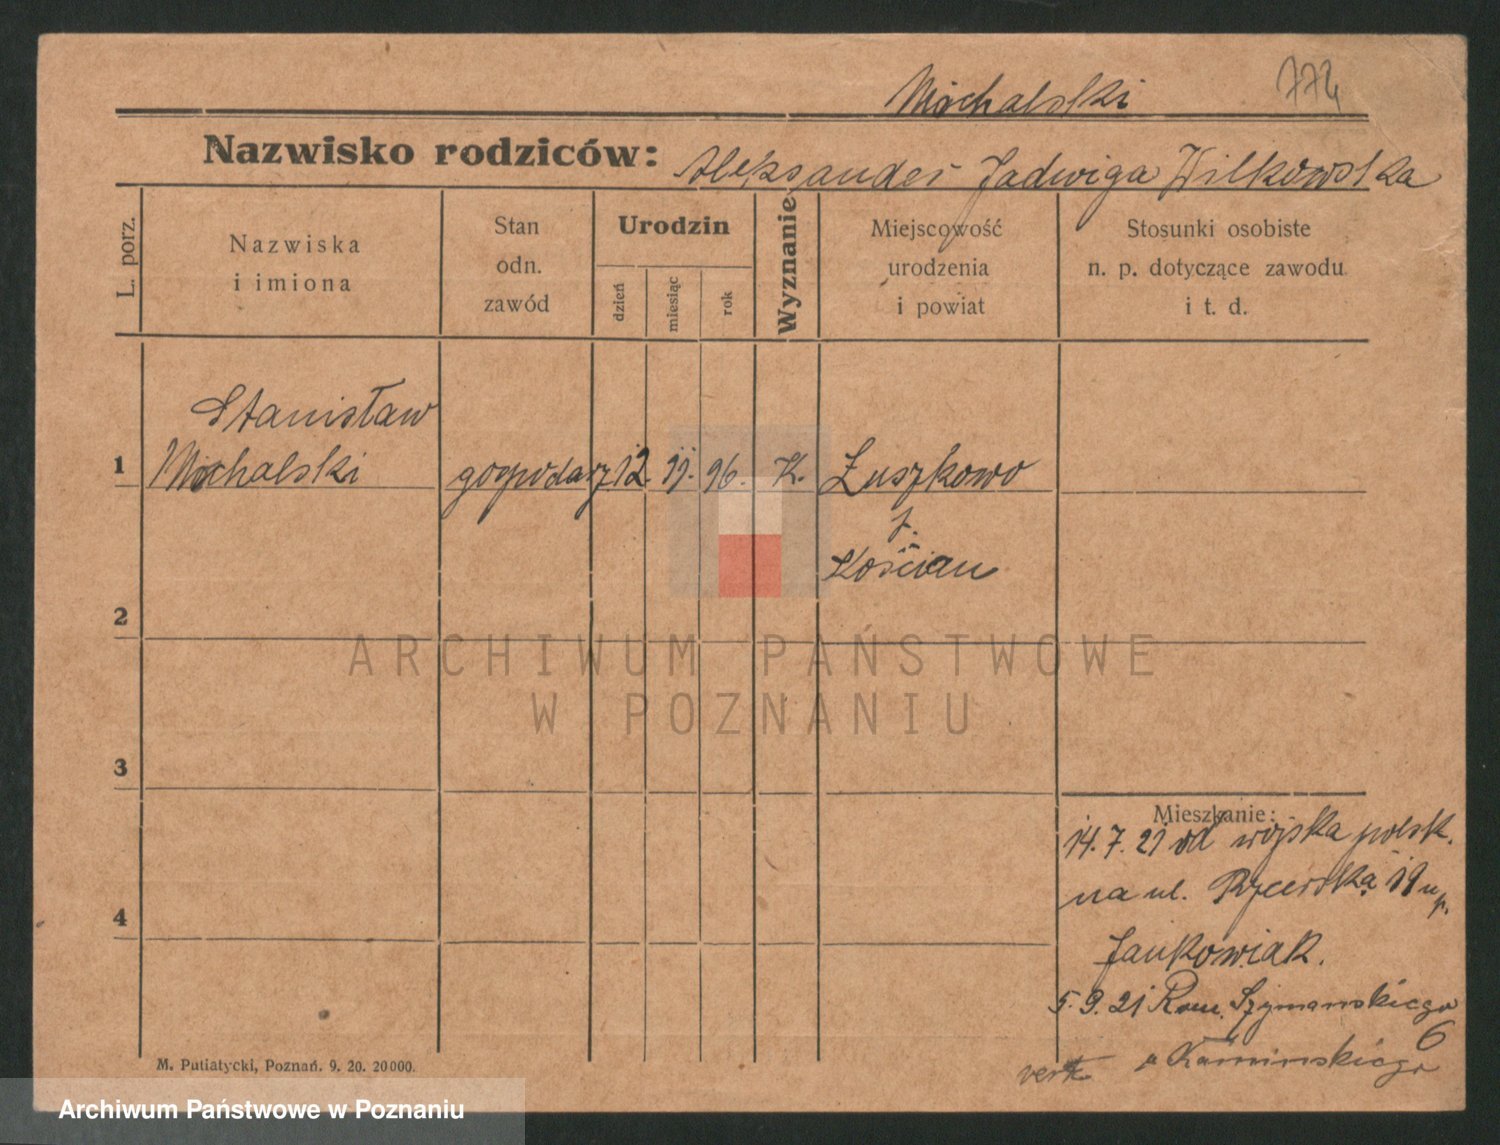 Michalski
774
Nazwisko rodziców: Aleksander Jadwiga Wilkowska
L. porz.
Nazwiska
i imiona
Stan
odn.
zawód
Urodzin
dzień
miesiąc
rok
Wyznanie
Miejscowość
urodzenia
i powiat
Stosunki osobiste
n. p. dotyczące zawodu
i t. d.
Stanisław
1 Michalski gospodarz 12. 11. 96. K. Łuszkowo
Kościan
2
ARCHIWUM PAŃSTWOWE
W POZNANIU
3
Mieszkanie:
14.7.21 od wojska polsk.
na ul. Rycerską 19
4
Jankowiak.
5.9.21 Rom. Szymańskiego
6
Kamińskiego
M. Putiatycki, Poznań. 9. 20. 20000.
Archiwum Państwowe w Poznaniu